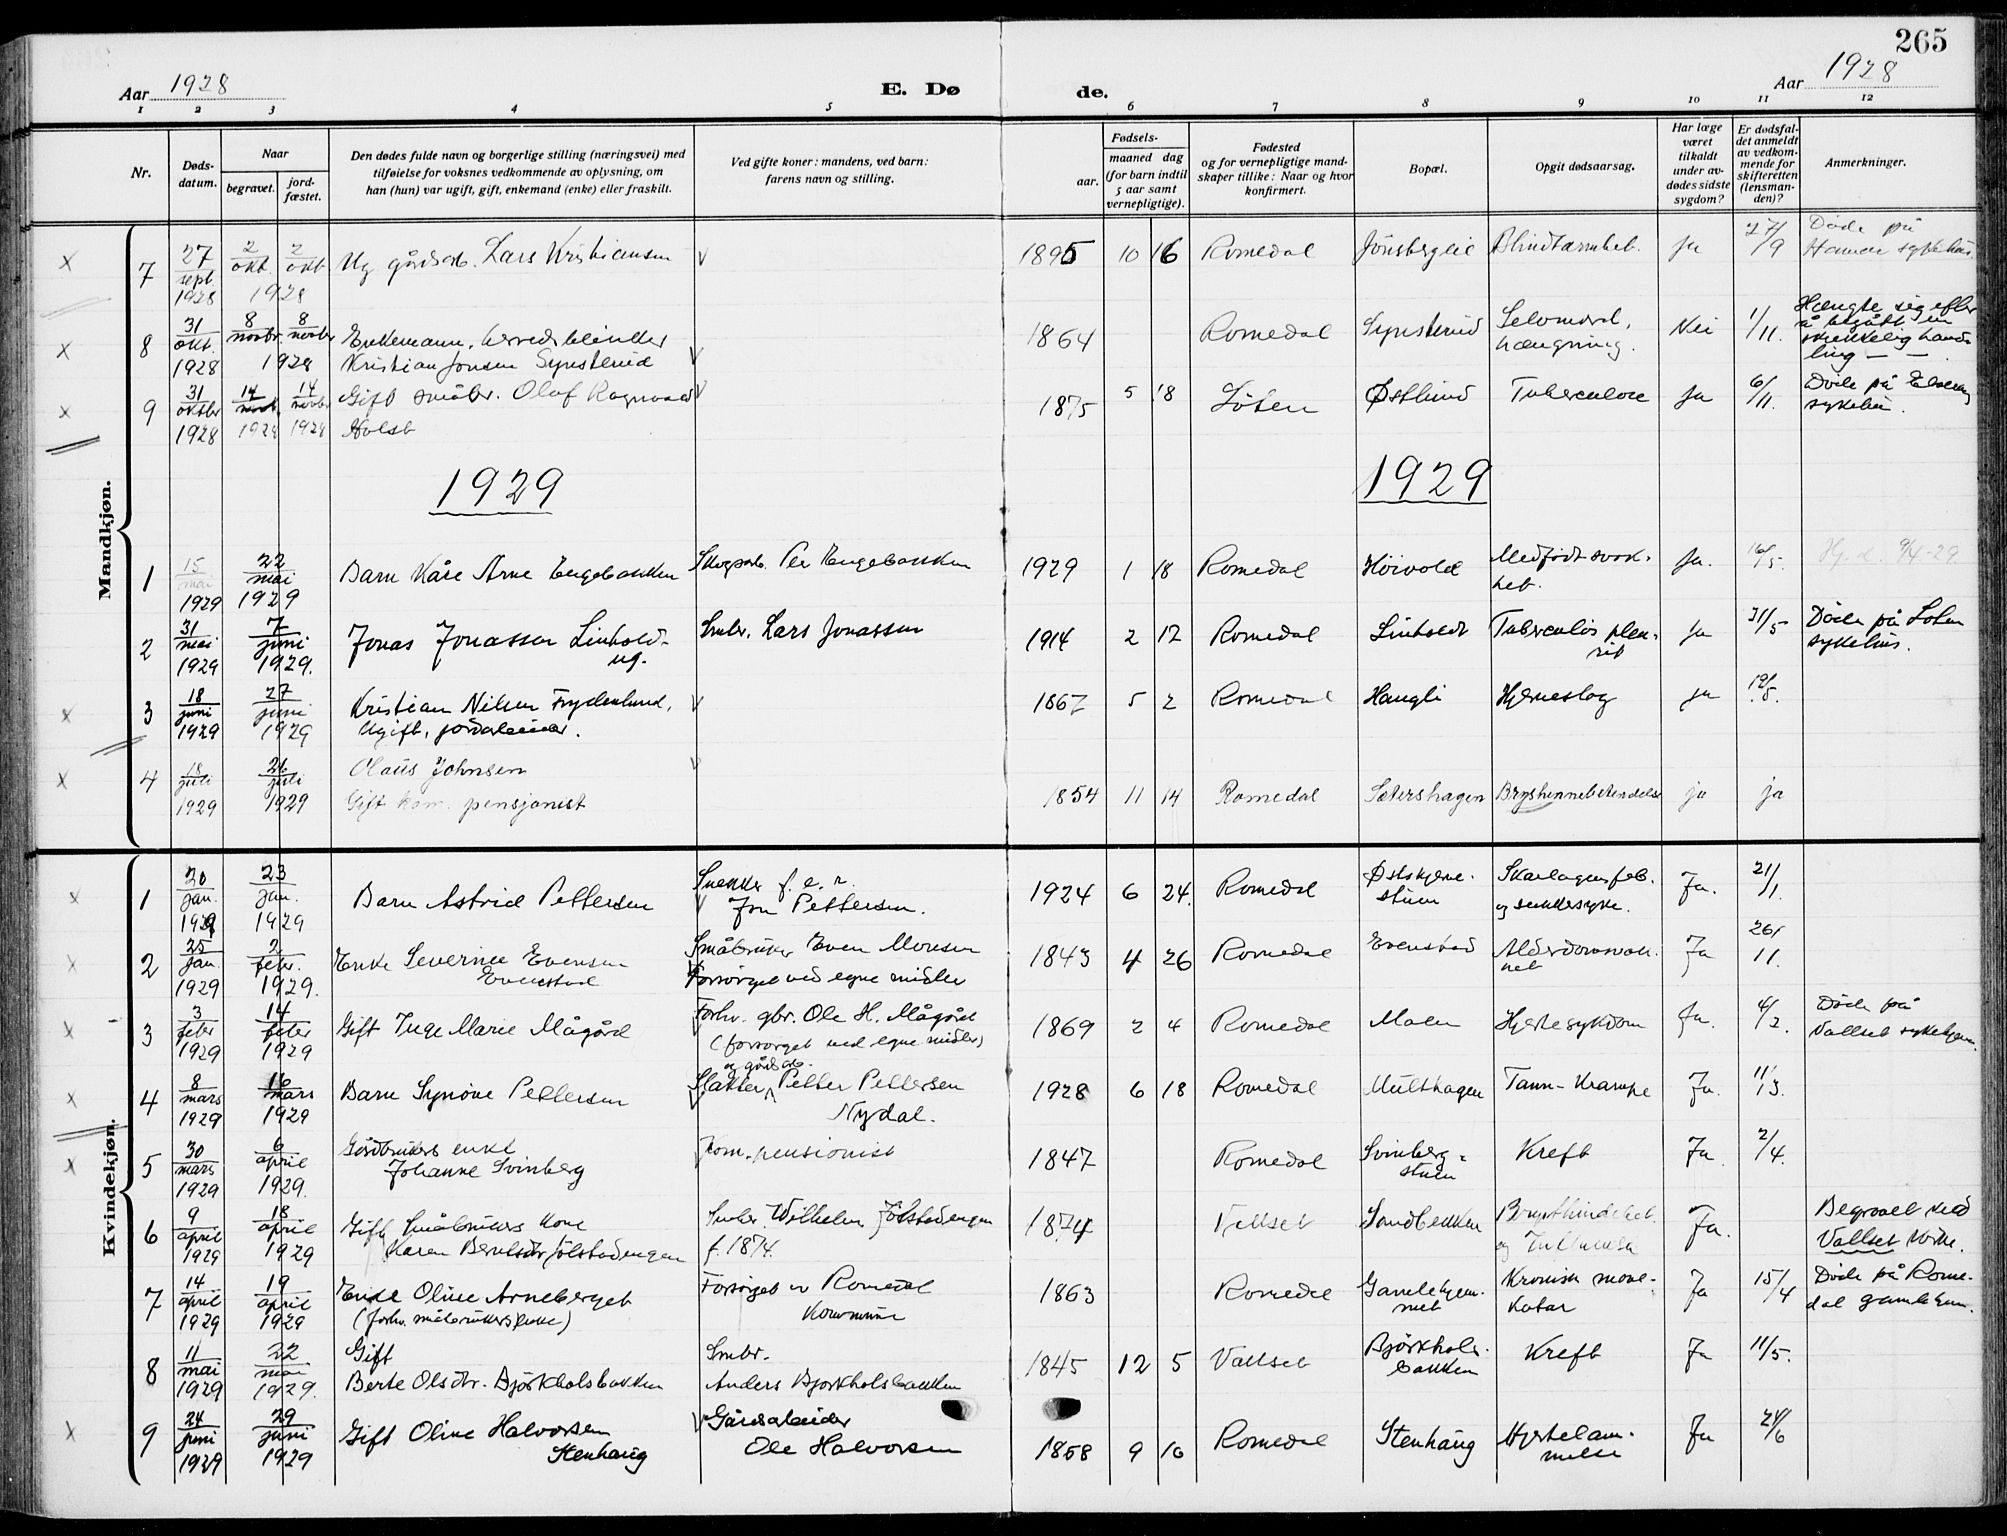 265
Aar 1928
E. Dø
de.
Aar 1928
1 2 3 4 5 6 7 8 9 10 11 12
Nr.
Døds-
datum.
Naar
begravet.
jord-
fæstet.
Den dødes fulde navn og borgerlige stilling (næringsvei) med
tilføielse for voksnes vedkommende av oplysning, om
han (hun) var ugift, gift, enkemand (enke) eller fraskilt.
Ved gifte koner: mandens, ved barn:
farens navn og stilling.
Fødsels-
aar.
maaned dag
(for barn indtil
5 aar samt
vernepligtige).
Fødested
og for vernepligtige mand-
skaper tillike: Naar og hvor
konfirmert.
Bopæl.
Opgit dødsaarsag.
Har læge
været
tilkaldt
under av-
dødes sidste
sygdom?
Er dødsfal-
det anmeldt
av vedkom-
mende for
skifteretten
(lensman-
den)?
Anmerkninger.
Mandkjøn.
7 27 sept. 1928 2 okt. 2 okt 1928 Ug gårdsarb. Lars Kristiansen 1895 10 16 Romedal Jønsberglie Blindtarmbet. Ja 27/9 Døde på
Hamar sykehus.
8 31 okt. 1928 8 novbr 8 novbr 1928 Enkemann,
Kristian Jonsen Synsterud 1864 Romedal Synsterud Selvmord,
hængning. Nei 1/11. Hængte sig efter
å begått en
skrekkelig hand-
ling — —.
9 31 oktbr 1928 14 novb. 1928 14 novbr 1928 Gift småbr. Olaf Ragnvald
Holst 1875 5 18 Løten Østlund Tuberculose Ja 6/11. Døde på Elverum
sykehus.
1929
1929
1 15 mai 1929 22 mai 1929 Barn Kåre Arne Engebakken Skogsarb. Per Engebakken 1929 1 18 Romedal Hörvold Medfødt svak-
het. Ja. 16/5. Hj.d. 9/4-29
2 31 mai 1929 7 juni 1929. Jonas Jonassen Linholdt
ug. Smbr. Lars Jonassen 1914 2 12 Romedal Linholdt Tuberculøs pleu-
rit Ja 31/5 Döde på Løten
sykehus.
3 18 juni 1929 27 juni 1929 Kristian Nilsen Frydenlund,
Ugift, jordarbeider. 1867 5 2 Romedal Haugli Hjerneslag ja 19/5.
4 18 juli 1929 26 juli 1929 Olaus Johnsen
Gift kom. pensjonist 1854 11 14 Romedal Sætershagen Brysthinnebetendelse ja ja
Kvindekjøn.
1 20 jan. 1929 23 jan. 1929 Barn Astrid Pettersen Snekker f. e. r.
Jon Pettersen. 1924 6 24. Romedal Østskjerre-
stuen Skarlagensfeb.
og sukkersyke. Ja. 21/1.
2 25 jan. 1929 2 febr. 1929. Enke Severine Evensen
Evenstad Småbruker Even Monsen
Forsørget ved egne midler 1843 4 26 Romedal Evenstad Alderdomssvak-
het Ja 26/11.
3 3 febr 1929 14 febr 1929 Gift Inge Marie Mågård Forhv. gbr. Ole H. Mågård
(forsørget ved egne midler) 1869 2 4 Romedal Malen Hjertesykdom Ja. 4/2. Døde på
Vallset sykehjem.
4 8 mars 1929 16 mars 1929 Barn Synöve Pettersen og gårdsarb.
Slakter Petter Pettersen
Nydal. 1928 6 18 Romedal Multhagen Tann-Krampe Ja. 11/3.
5 30 mars 1929 6 april 1929. Gårdbrukers enke
Johanne Svinberg Kom.-pensionist 1847 Romedal Svinberg-
stuen Kreft Ja 2/4.
6 9 april 1929 18 april 1929 Gift Småbrukers kone
Karen Berntsdtr Jølstadengen Smbr. Wilhelm Jølstadengen
f. 1874. 1874 Vallset Sandbakken Brysthindebet.
og Influensa Ja. Begravet ved
Vallset kirke.
7 14 april 1929 19 april 1929 Enke Oline Arneberget
(forhv. målbrukers enke) Forsørget av Romedal
Kommune 1863 Romedal Gamlehjem-
met Kronisk mave-
katar Ja 15/4 Døde på Rome-
dal gamlehjem.
8 11 mai 1929 22 mai 1929. Gift
Berte Olsdtr. Bjørkholsbakken Smbr.
Anders Bjørkholsbakken 1845 12 5 Vallset Bjørkhols-
bakken Kreft Ja 11/5.
9 24 juni 1929 29 juni 1929 Gift Oline Halvorsen
Stenhaug Gårdsarbeider
Ole Halvorsen 1858 9 10 Romedal Stenhaug Hjertelam-
melse Ja 24/6